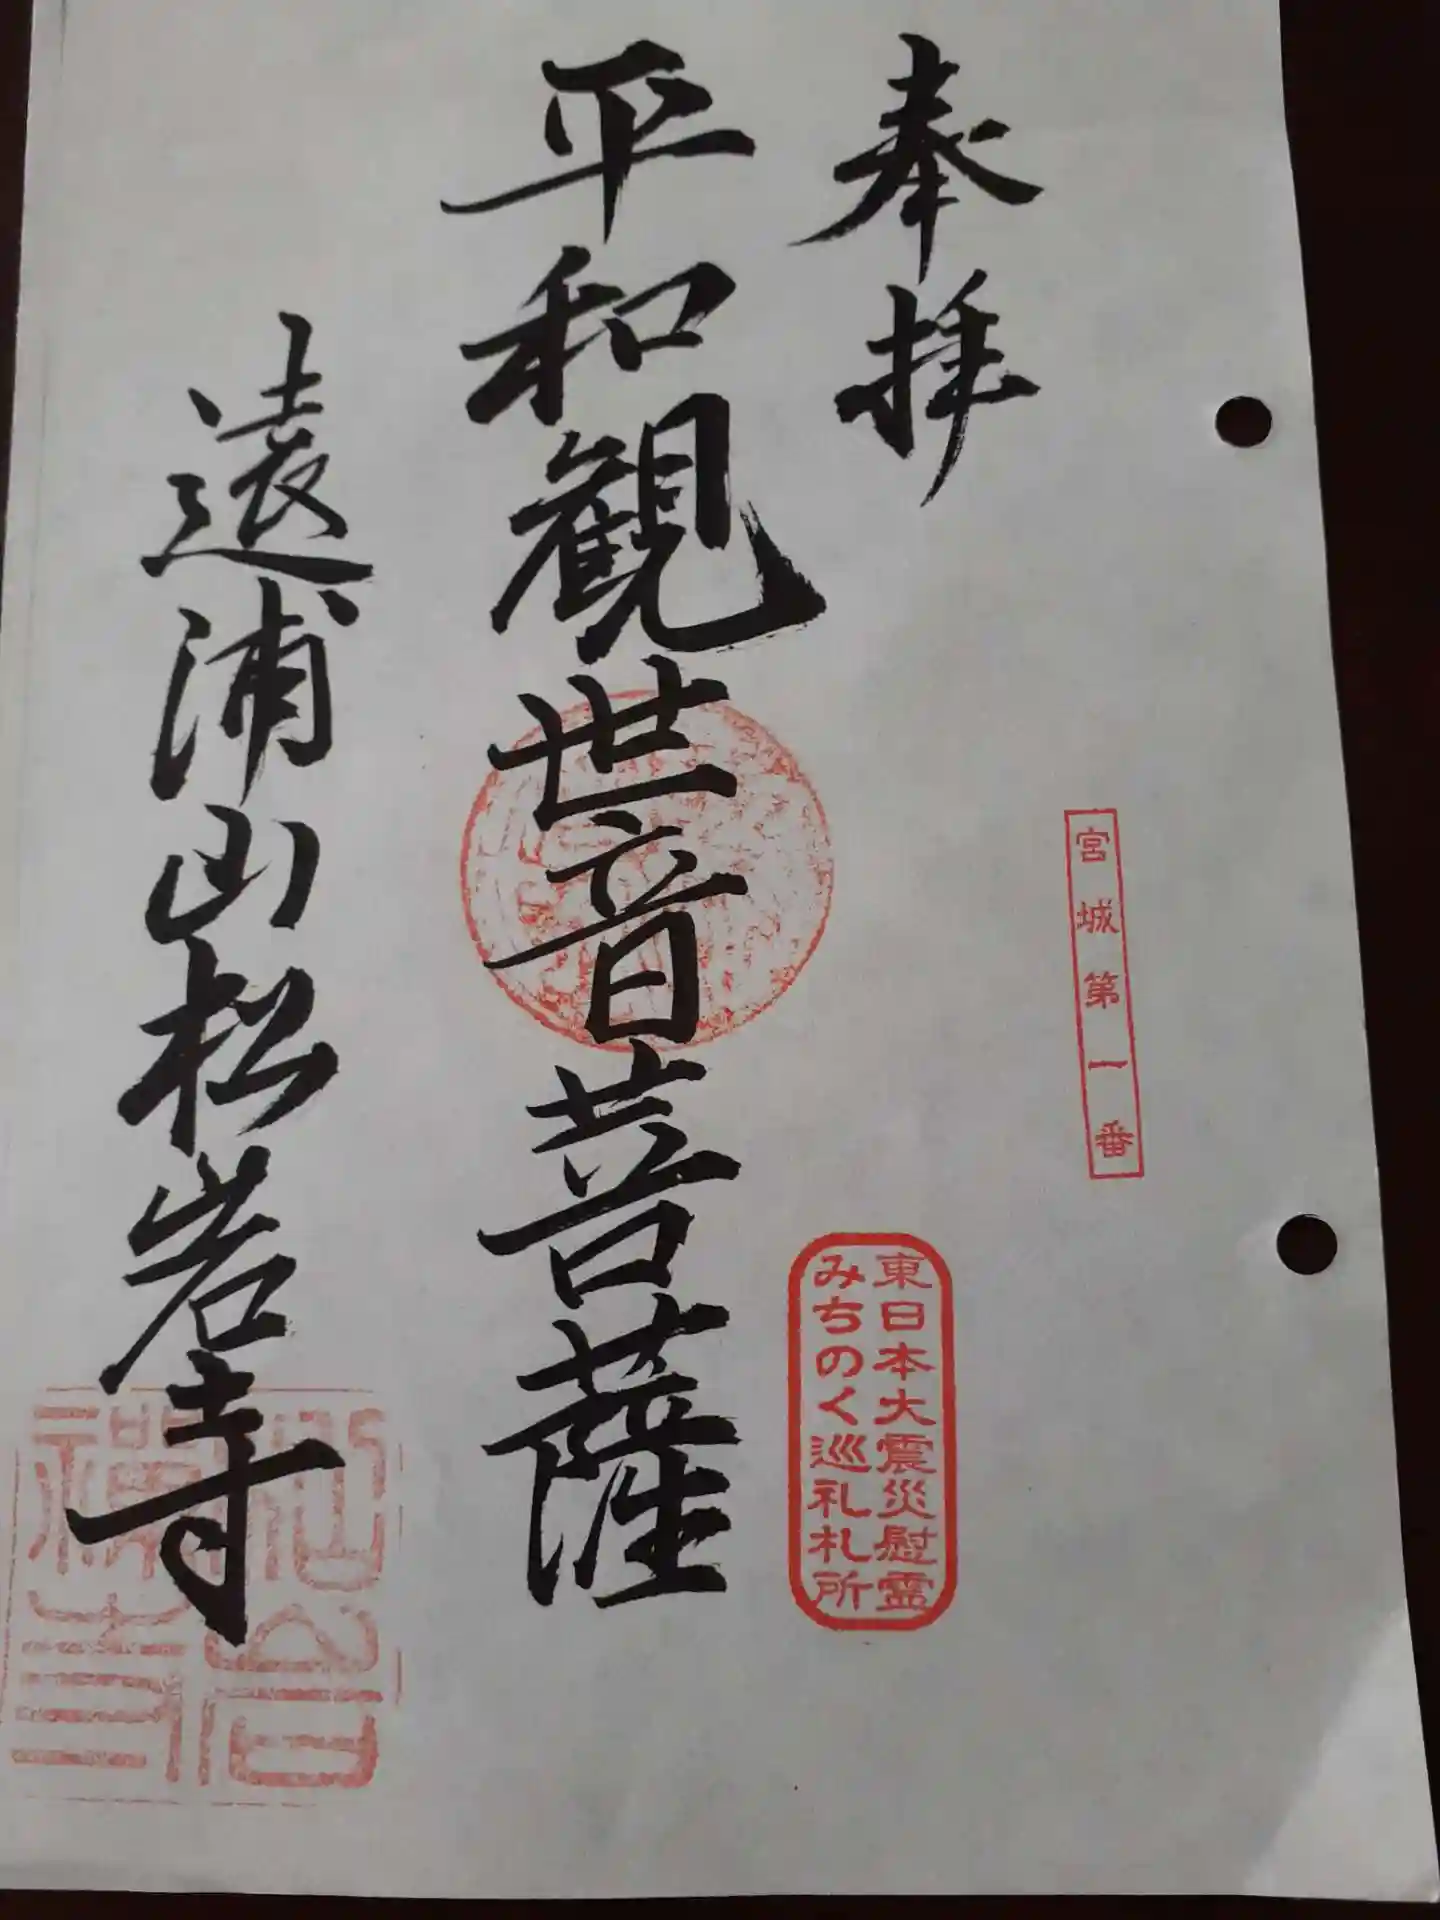 奉拝
宮城第一番
東日本大震災慰霊
みちのく巡礼札所
平和観世音菩薩
遠浦山松岩寺
松岩
禅寺